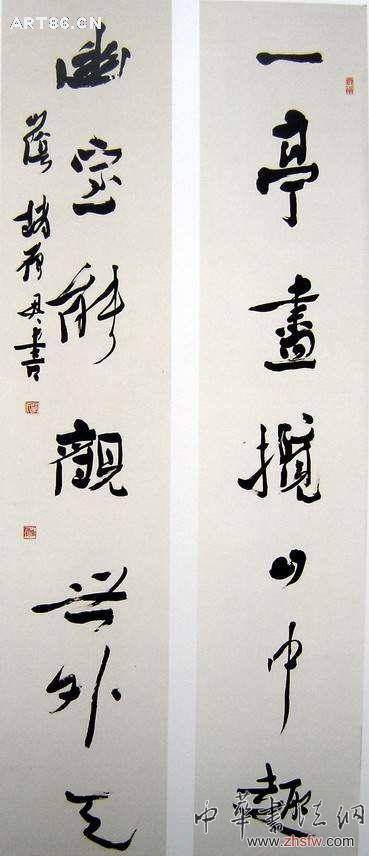 ART86.CN
一亭盡攬山中趣
幽室能觀世外天
書
中華書法網
www.zhsfw.com